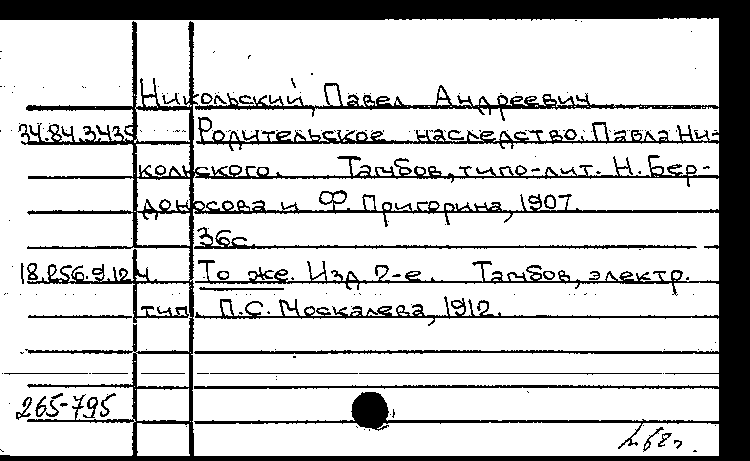 Никольский, Павел Андреевич
34.84.3.435 Родительское наследство. Павла Ни-
кольского. Тамбов, типо-лит. Н. Бер-
доносова и Ф. Пригорина, 1907.
36с.
18.256.9.124. То же. Изд. 2-е. Тамбов, электр.
тип. П.С. Москалева, 1912.
265-795